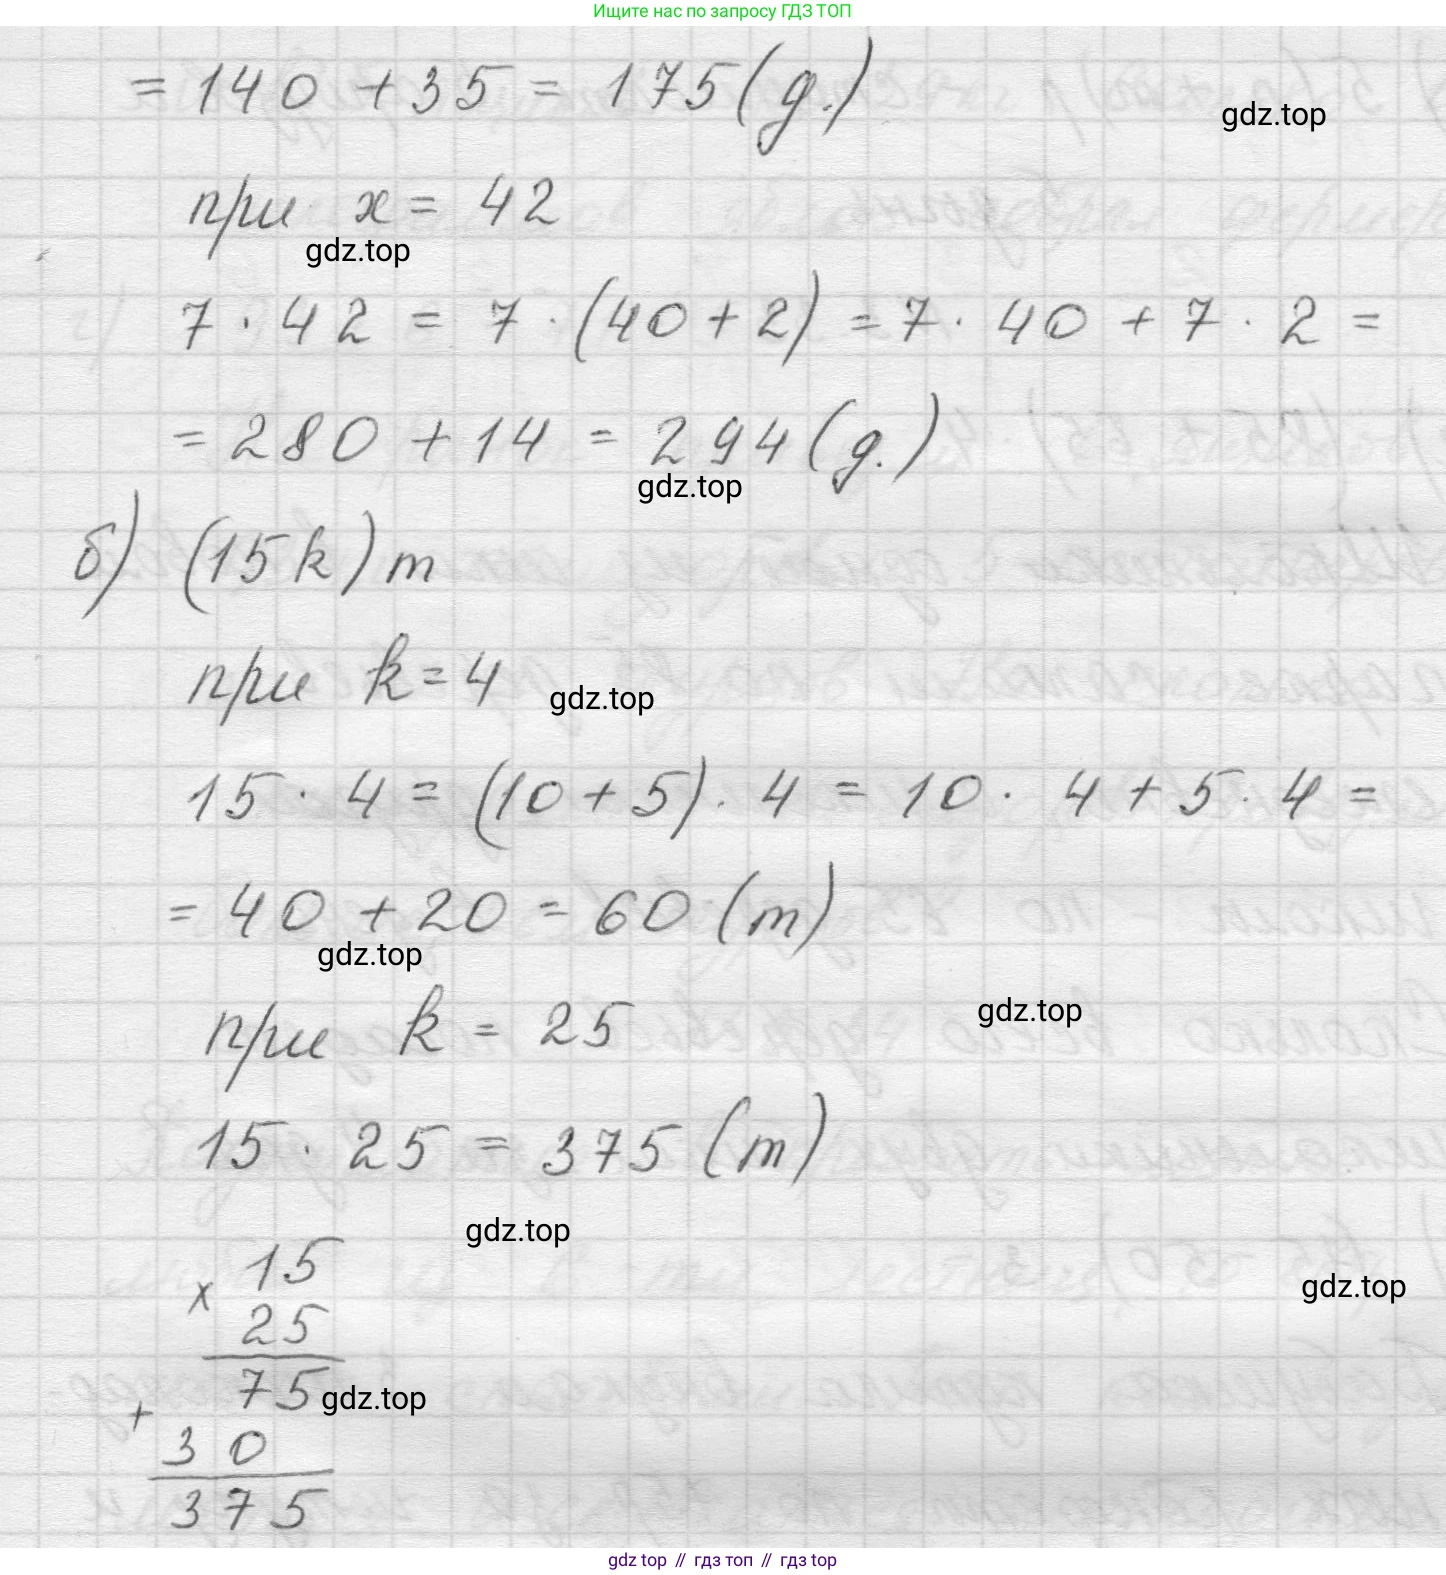 Ищите нас по запросу ГДЗ ТОП
= 140 + 35 = 175 (д.)
gdz.top
при x = 42
gdz.top
7 · 42 = 7 · (40 + 2) = 7 · 40 + 7 · 2 =
= 280 + 14 = 294 (д.)
gdz.top
б) (15k) m
при k = 4
gdz.top
15 · 4 = (10 + 5) · 4 = 10 · 4 + 5 · 4 =
= 40 + 20 = 60 (m)
gdz.top
при k = 25
gdz.top
15 · 25 = 375 (m)
gdz.top
x 15
gdz.top
25
75
gdz.top
+
30
375
gdz top // гдз топ // гдз top